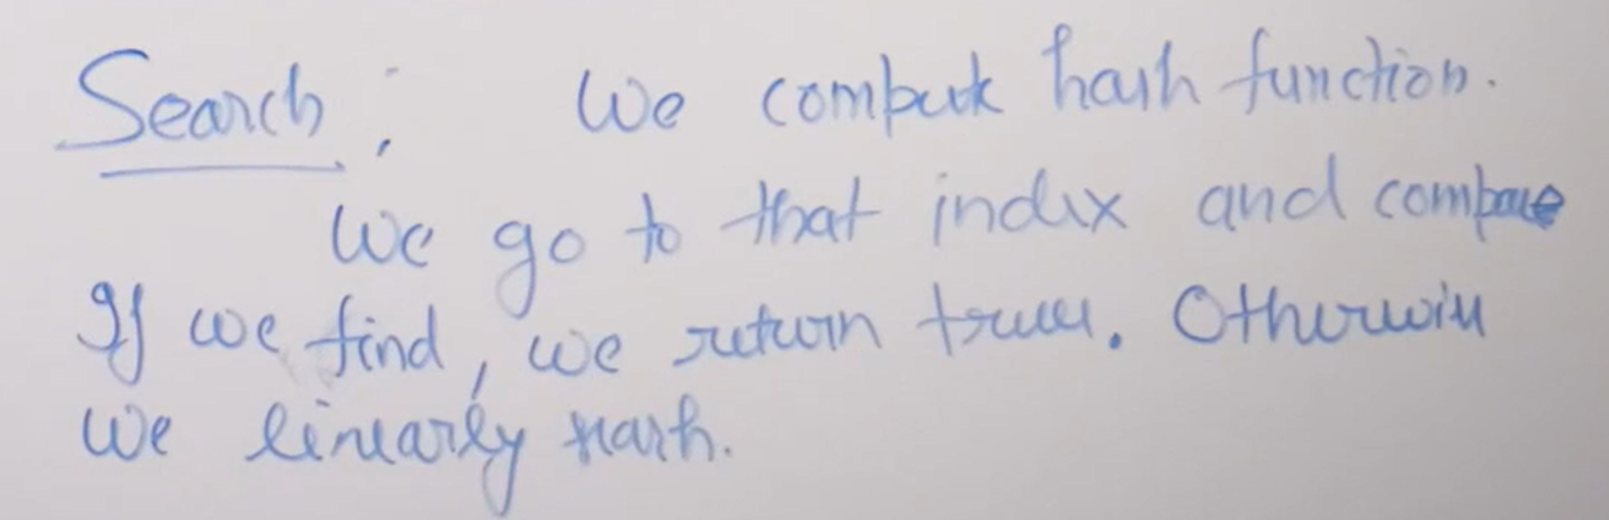 Search: We compute hash function.
We go to that index and compare
If we find, we return true. Otherwise
we linearly search.